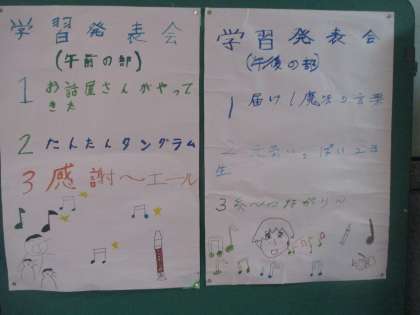 学習発表会
(午前の部)
1 お話屋さんがやって
きた
2 たんたんタングラム
3 感謝〜エール
学習発表会
(午後の部)
1 届け!魔法の言葉
2 元気いっぱい2年
生
3 糸〜のつながり〜